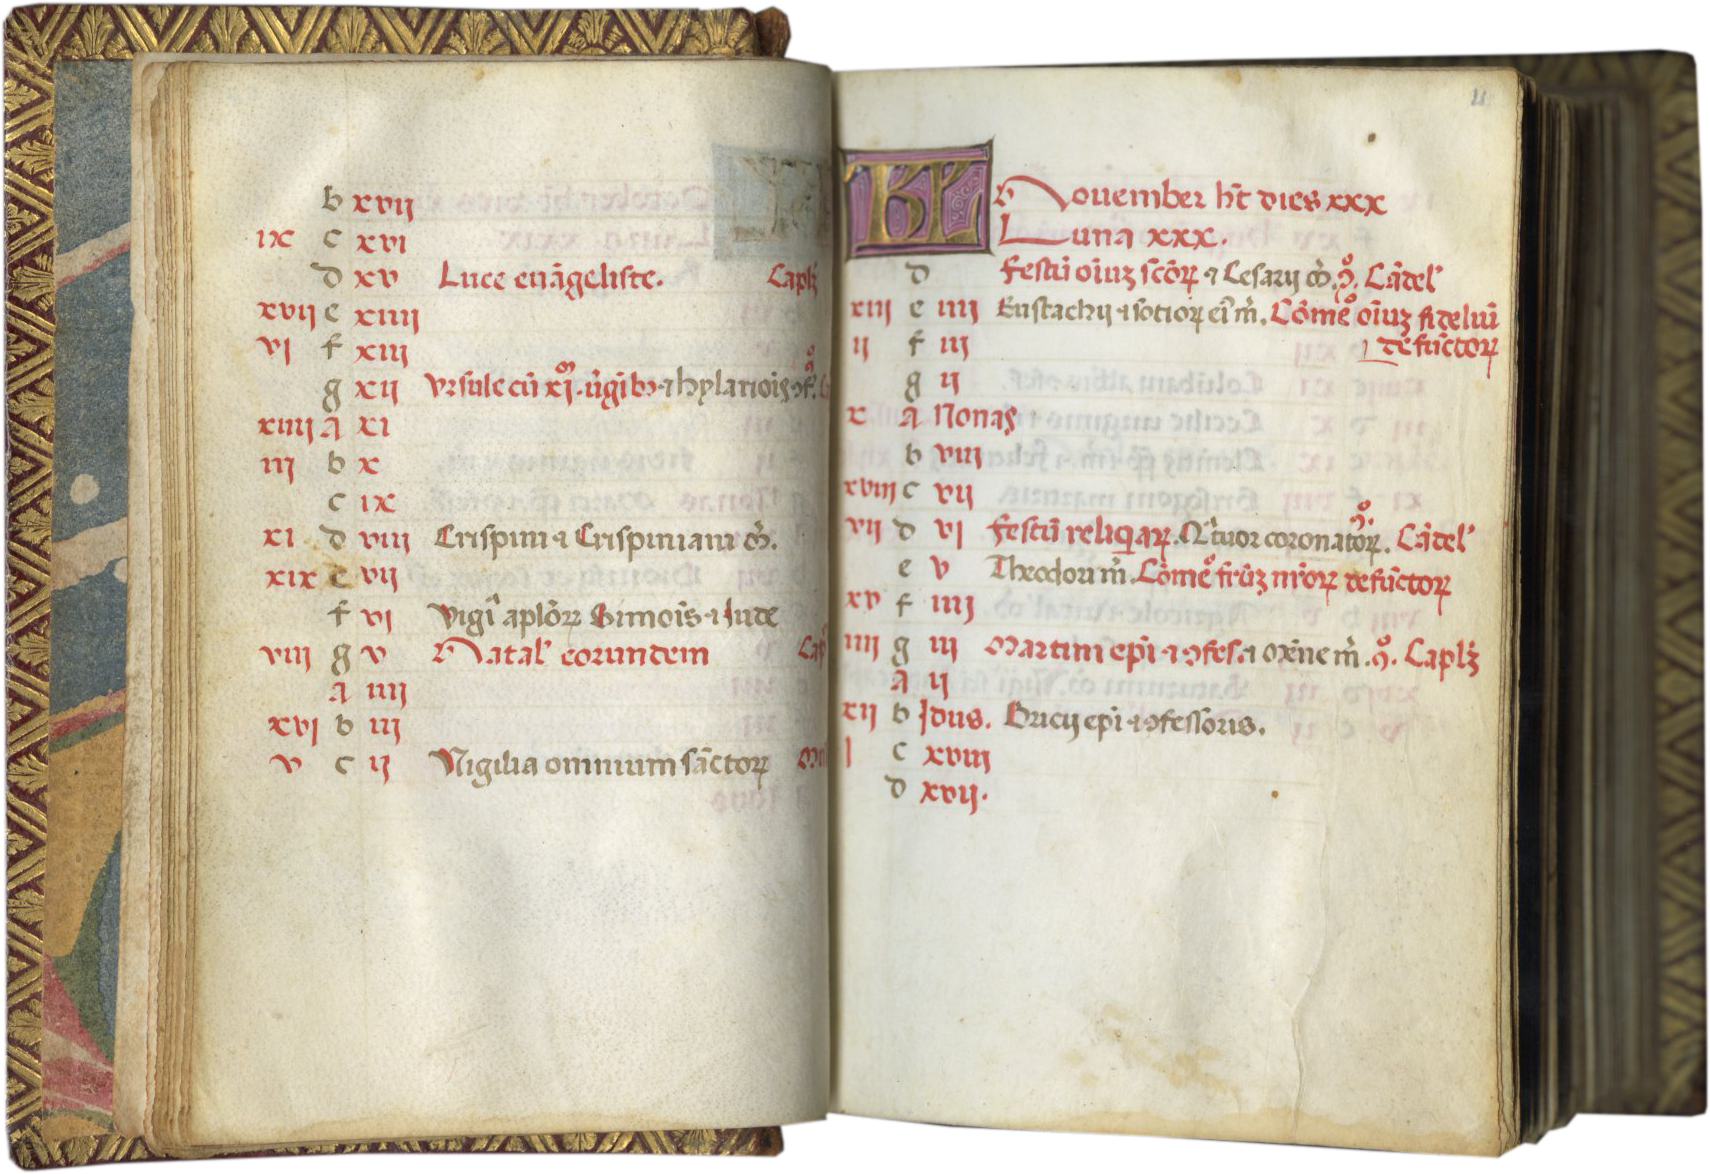 b xvij
ix c xvi
d xv Luce euãgeliste. Capl'
xvij e xiiij
vj f xiij
g xij vrsule cũ xj. ũgĩb & hylariõis
xiiij A xi
iij b x
c ix
xi d viij Crispini & Crispiniani m̃.
xix e vij
f vj vigĩ aplõꝝ Simõis & Iude
viij g v Natal' eorundem Cap
A iiij
xvj b iij
v c ij Vigilia omnium sãctoꝝ
KL November ht̃ dies xxx
Luna xxx.
d Festũ oĩuz scõꝝ & Cesarij m̃. Cãdel'
xiij e iiij Eustachij & sotioꝝ ei' m̃. Cõmẽo oĩuz fidelium
ij f iij defũctoꝝ
g ij
x A Nonas
b viij
xviij c vij
vij d vj Festũ reliqiaꝝ. Q̃tuor coronatoꝝ. Cãdel'
e v Theodori m̃. Cõmẽo frũz nr̃oꝝ defũctoꝝ
xv f iiij
iiij g iij Martini epĩ & ꝯfes. & m̃ene m̃. Capl'
A ij
xij b Idus. Bricij epĩ & ꝯfessoris.
j c xviij
d xvij.